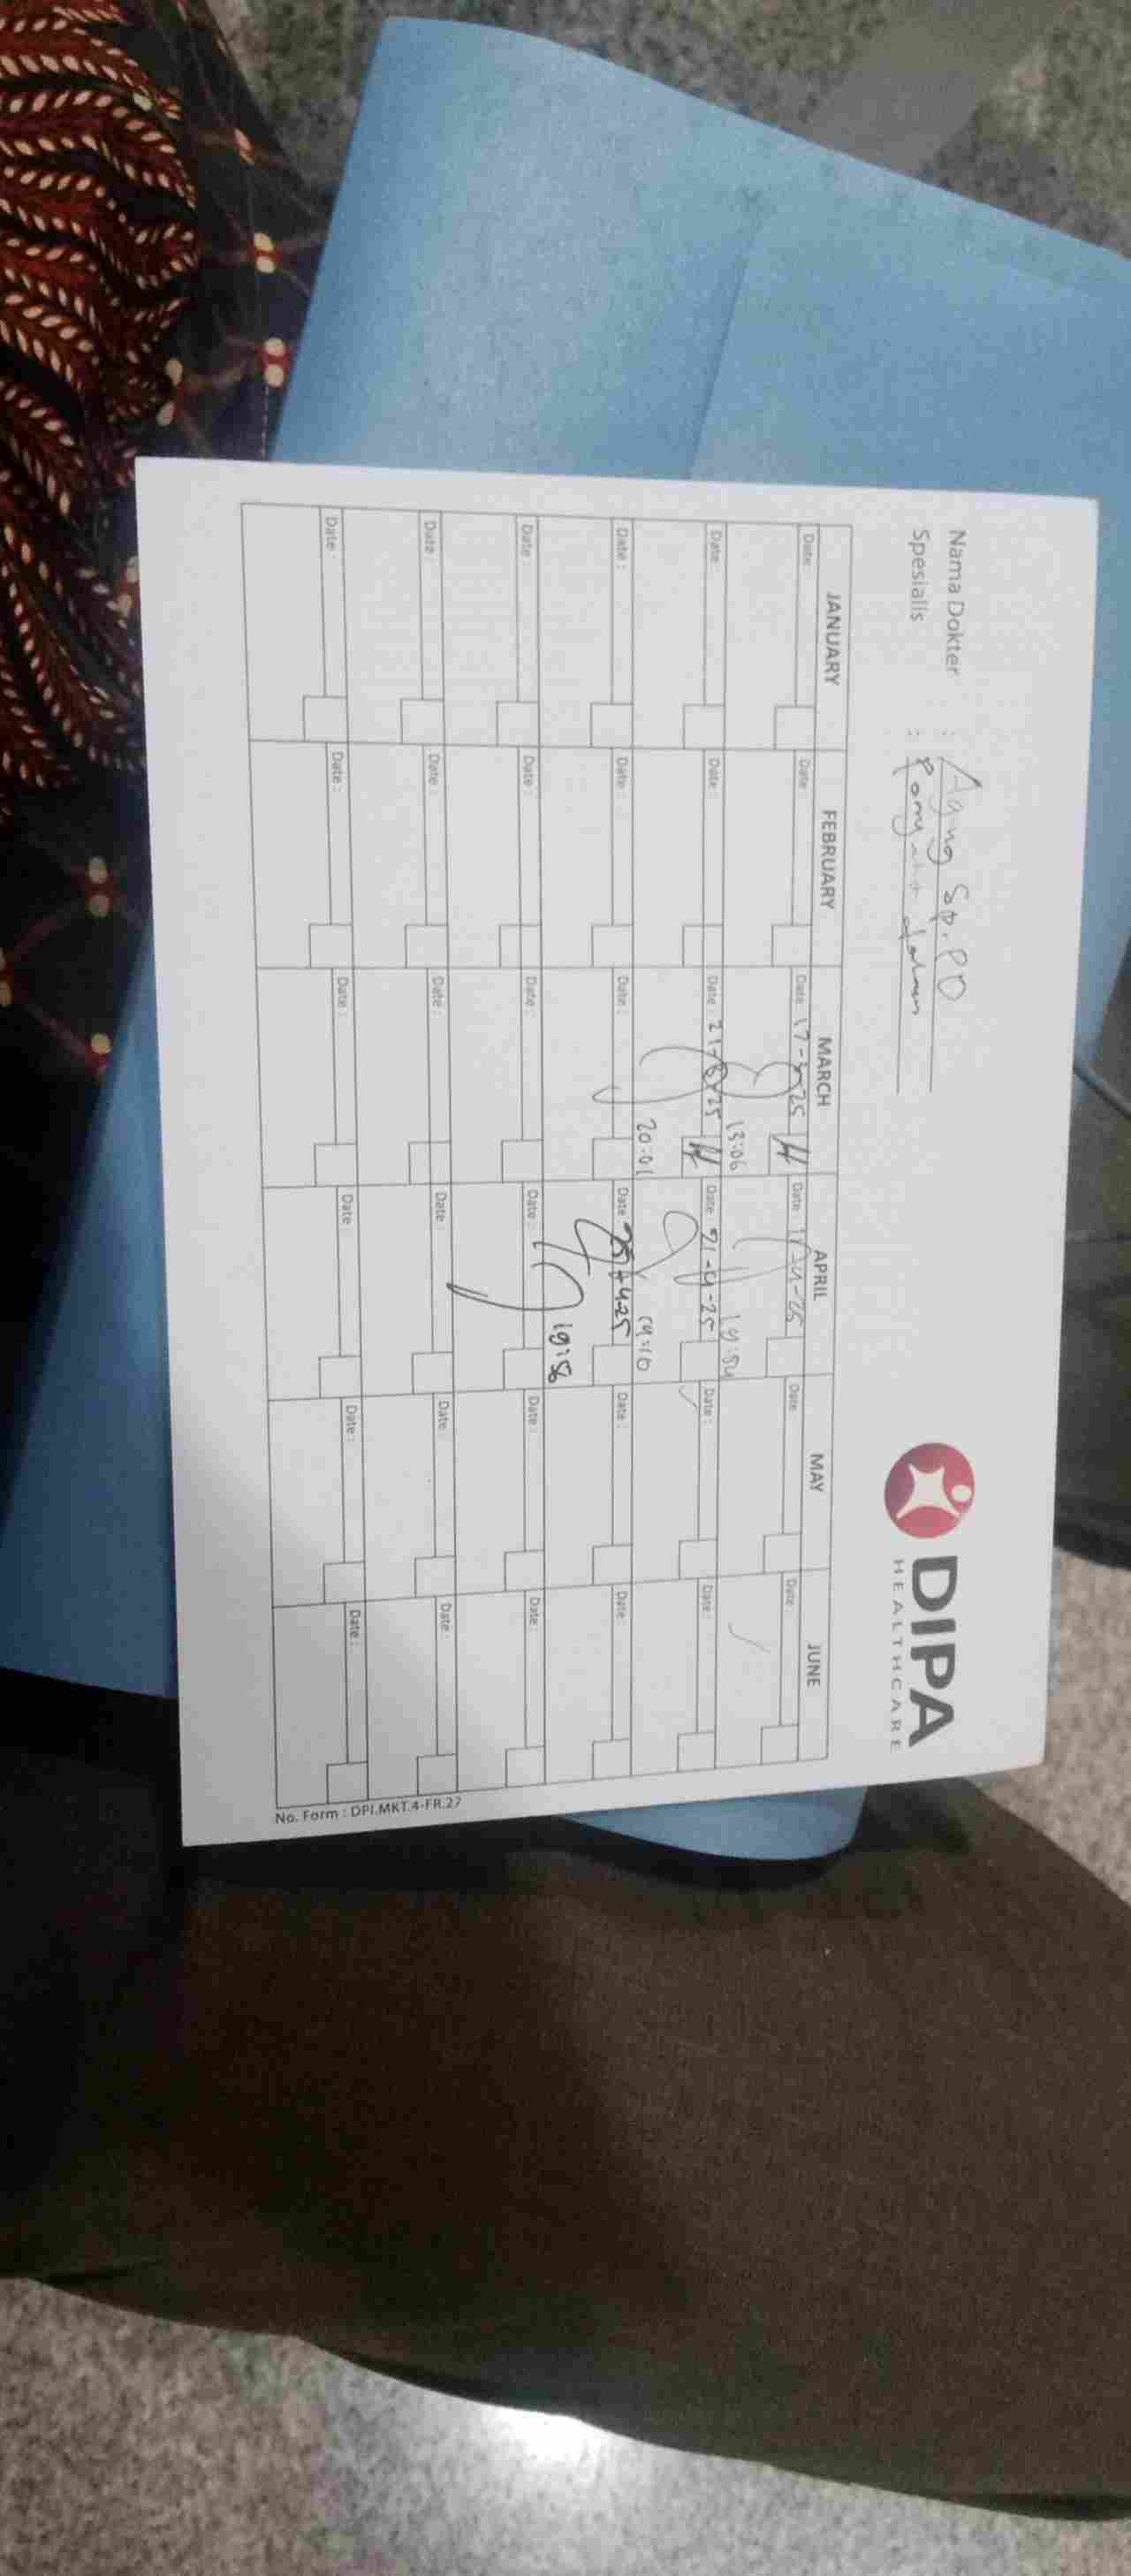 Nama Dokter : Agung Sp.PD
Spesialis : Penyakit dalam
DIPA
HEALTHCARE
JANUARY FEBRUARY MARCH APRIL MAY JUNE
Date : Date : Date : 17-3-25 Date : 17-4-25 Date : Date :
13:06 19:54
Date : Date : Date : 21-3-25 Date : 21-4-25 Date : Date :
20:01 14:10
Date : Date : Date : Date : 25-4-25 Date : Date :
19:56
Date : Date : Date : Date : Date : Date :
Date : Date : Date : Date : Date : Date :
Date : Date : Date : Date : Date : Date :
No. Form : DPI.MKT.4-FR.27